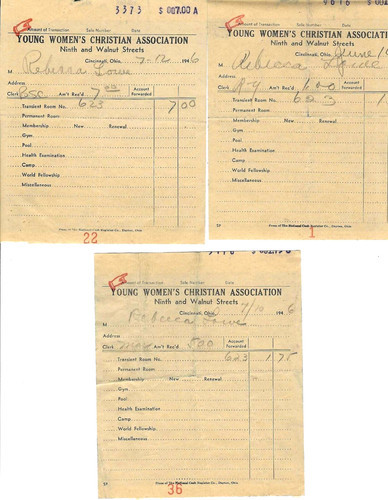 3373 $ 007.00 A
Amount of Transaction Sale Number Date
YOUNG WOMEN'S CHRISTIAN ASSOCIATION
Ninth and Walnut Streets
Cincinnati, Ohio, 7-12 1946
M Rebecca Lowe
Address
Clerk BSC Am't Rec'd. 7.00 Account Forwarded
Transient Room No. 623 7 00
Permanent Room
Membership New Renewal
Gym
Pool
Health Examination
Camp
World Fellowship
Miscellaneous
Form of The National Cash Register Co., Dayton, Ohio
22
Amount of Transaction Sale Number Date
YOUNG WOMEN'S CHRISTIAN ASSOCIATION
Ninth and Walnut Streets
Cincinnati, Ohio, June
M Rebecca
Address
Clerk Am't Rec'd. 1.00 Account Forwarded
Transient Room No. 623 1
Permanent Room
Membership New Renewal
Gym
Pool
Health Examination
Camp
World Fellowship
Miscellaneous
57 Form of The National Cash Register Co., Dayton, Ohio
1
Amount of Transaction Sale Number Date
YOUNG WOMEN'S CHRISTIAN ASSOCIATION
Ninth and Walnut Streets
Cincinnati, Ohio, 7/10 1946
M Rebecca Lowe
Address
Clerk Am't Rec'd. 500 Account Forwarded
Transient Room No. 623 1 75
Permanent Room
Membership New Renewal
Gym
Pool
Health Examination
Camp
World Fellowship
Miscellaneous
57 Form of The National Cash Register Co., Dayton, Ohio
36